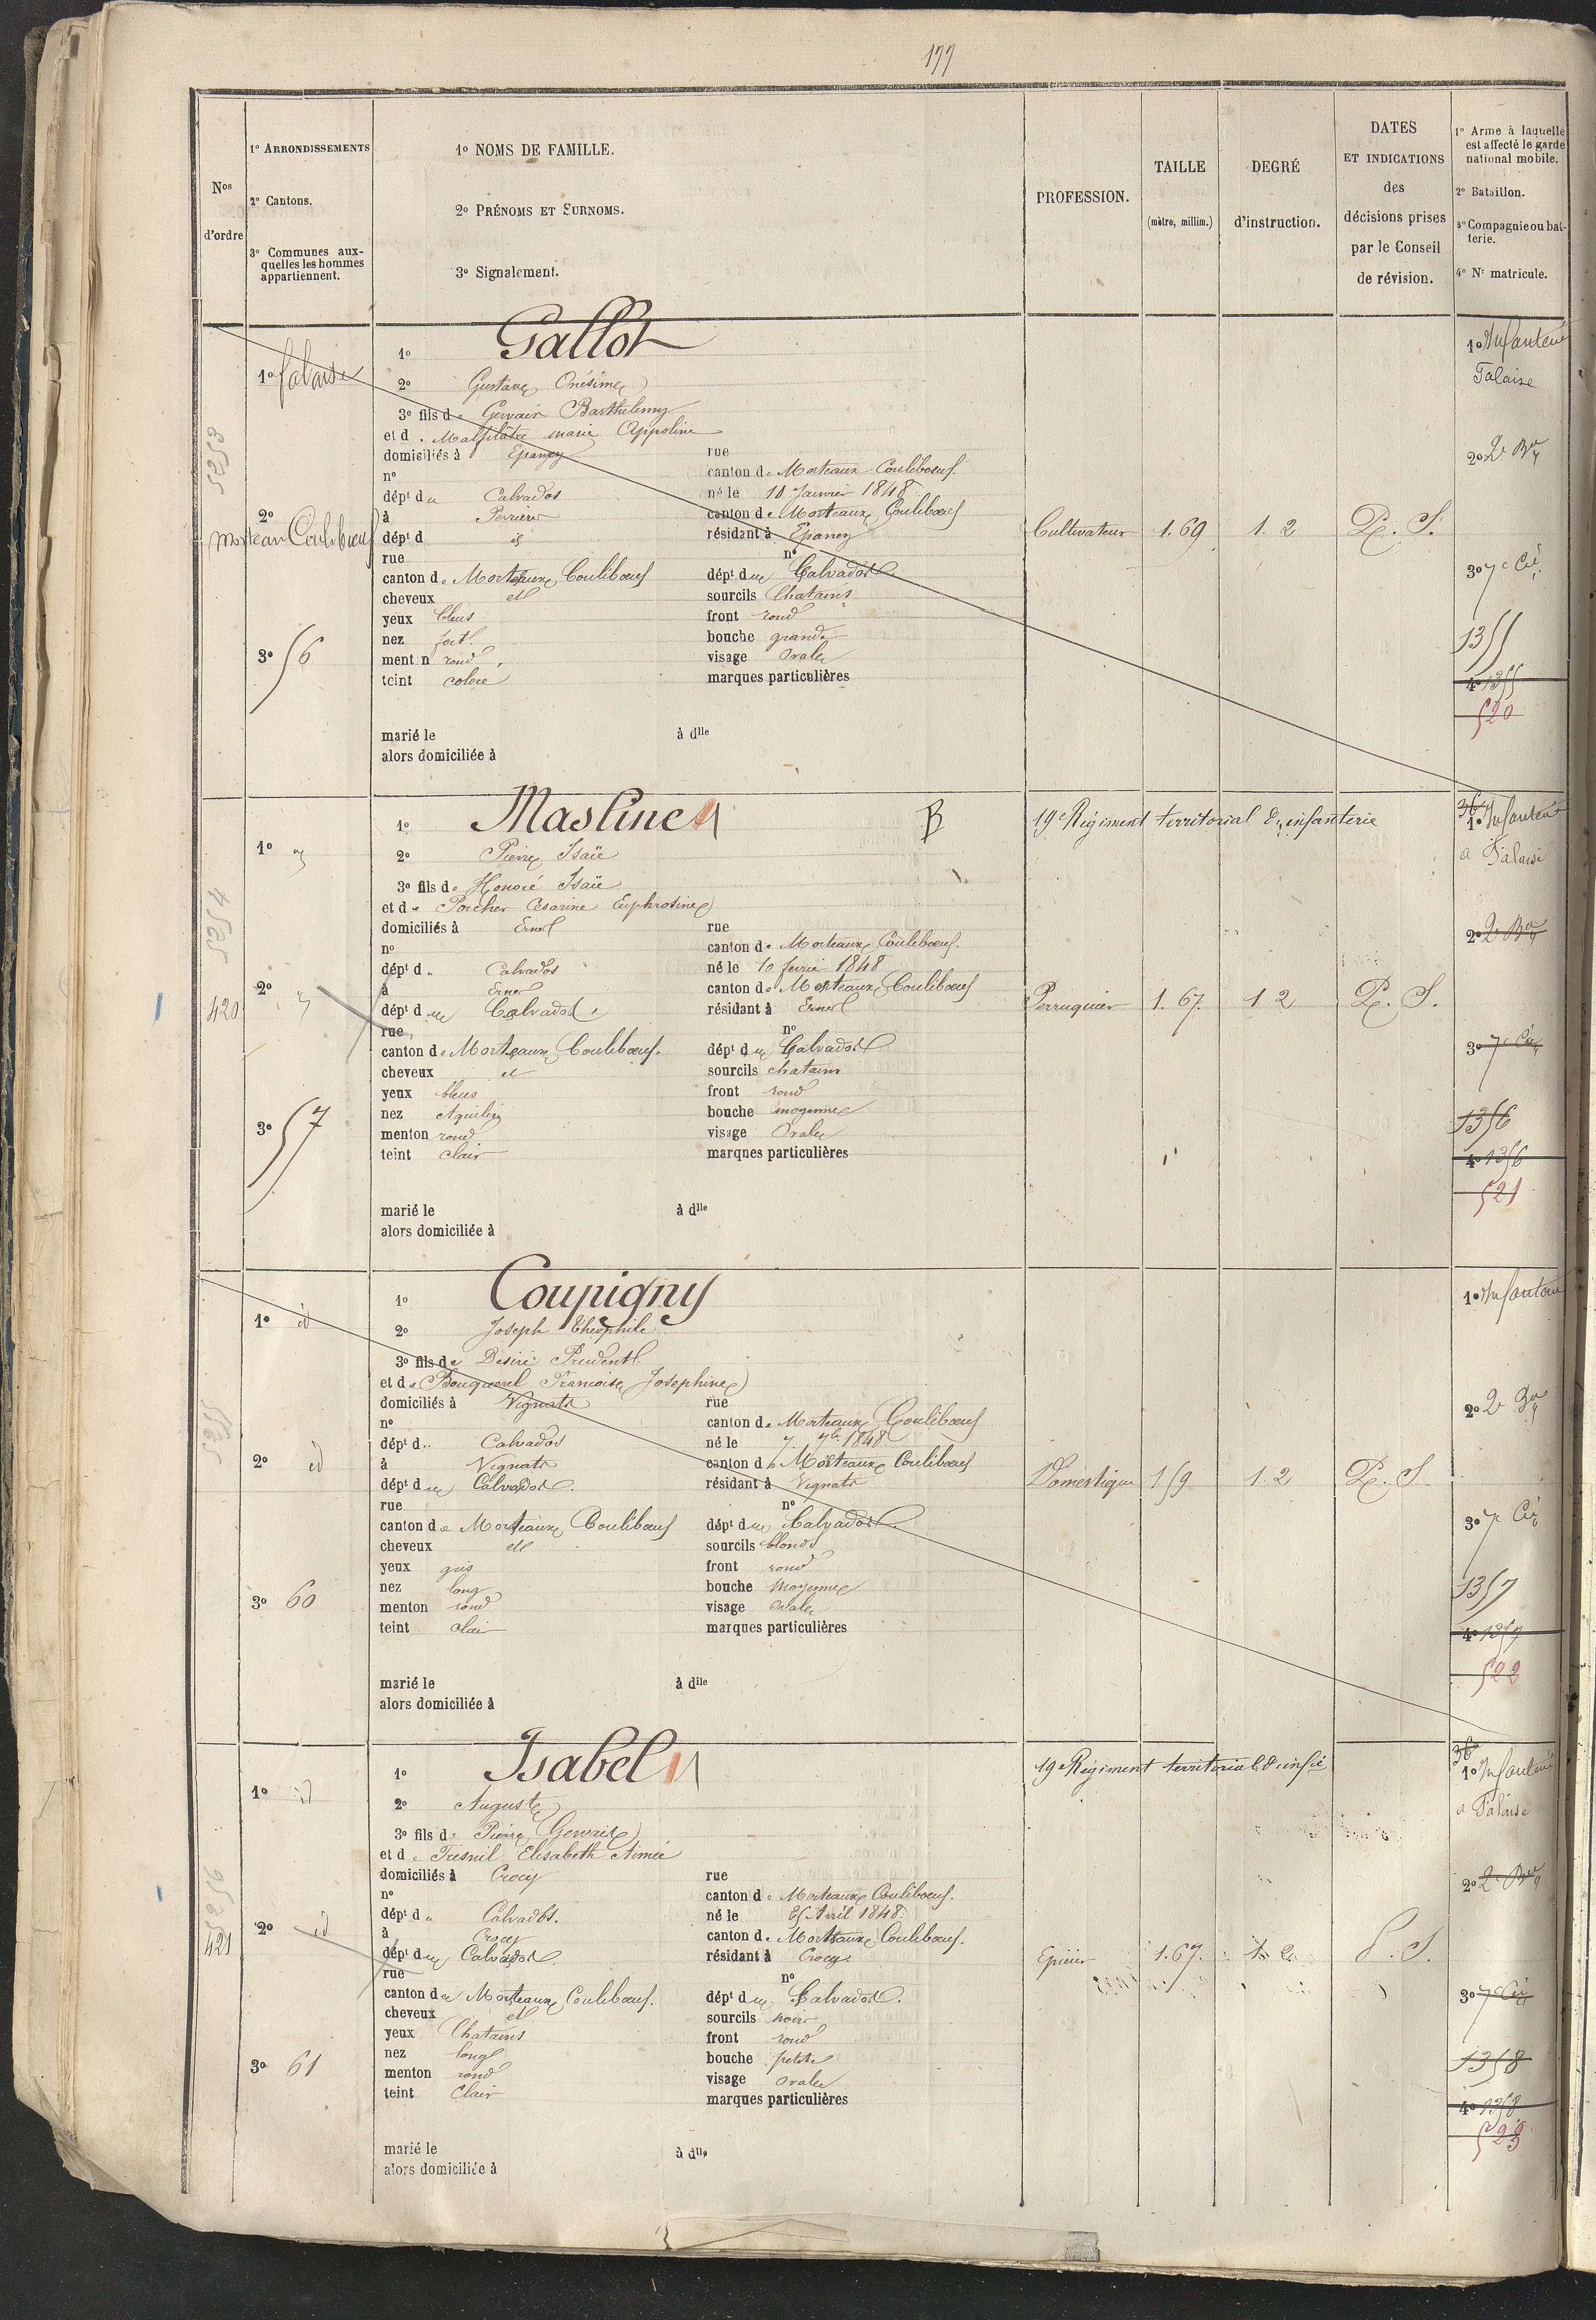 177
Nos d'ordre
1º ARRONDISSEMENTS
2º Cantons.
3º Communes aux-
quelles les hommes
appartiennent.
1º NOMS DE FAMILLE.
2º PRÉNOMS ET SURNOMS.
3º Signalement.
PROFESSION.
TAILLE
(mètre, millim.)
DEGRÉ
d'instruction.
DATES
ET INDICATIONS
des
décisions prises
par le Conseil
de révision.
1º Arme à laquelle
est affecté le garde
national mobile.
2º Bataillon.
3º Compagnie ou bat-
terie.
4º Nº matricule.
5253
1º falaise
2º
morteau Coulibœuf
3º 56
1º Gallot
2º Gustave Onésime
3º fils de Gervais Barthelemy
et d. Malfilâtre marie Appoline
domiciliés à Epaney rue
nº canton de Morteaux Coulibœuf.
dépt du Calvados né le 10 Janvier 1848
à Perrières canton de Morteaux Coulibœuf
dépt d id résidant à Epaney
rue nº
canton de Morteaux Coulibœuf dépt du Calvados
cheveux et sourcils Chatains
yeux bleus front rond
nez fort bouche grande
menton rond visage Ovale
teint coloré marques particulières
marié le à dlle
alors domiciliée à
Cultivateur 1.69 1.2 P. S.
1º Infanterie
Falaise
2º 2e Bon
3º 7e Cie
1355
4º 1355
520
5254
420
1º
2º
3º 57
1º Masline B
2º Pierre Isaïe
3º fils de Honoré Isaïe
et de Porcher Césarine Euphrosine
domiciliés à Ernes rue
nº canton de Morteaux Coulibœuf.
dépt d. Calvados né le 10 fevrier 1848
à Ernes canton de Morteaux Coulibœuf
dépt du Calvados résidant à Ernes
rue nº
canton de Morteaux Coulibœuf. dépt du Calvados
cheveux et sourcils chatains
yeux bleus front rond
nez Aquilin bouche moyenne
menton rond visage Ovale
teint clair marques particulières
marié le à dlle
alors domiciliée à
19e Régiment territorial d'infanterie
Perruquier 1.67. 1 2 P. S.
36e
1º Infanterie
a Falaise
2º 2e Bon
3º 7e Cie
1356
4º 1356
521
5255
1º id
2º id
3º 60
1º Coupigny
2º Joseph Théophile
3º fils de Désiré Prudent
et de Bouquerel Francoise Josephine
domiciliés à Vignats rue
nº canton de Morteaux Coulibœuf
dépt d. Calvados né le 7 7bre 1848
à Vignats canton de Morteaux Coulibœuf
dépt du Calvados. résidant à Vignats
rue nº
canton de Morteaux Coulibœuf dépt du Calvados.
cheveux et sourcils blonds
yeux gris front rond
nez long bouche Moyenne
menton rond visage Ovale
teint clair marques particulières
marié le à dlle
alors domiciliée à
Domestique 159 1 2 P. S
1º Infanterie
2º 2e Bon
3º 7e Cie
1357
4º 1357
522
5256
421
1º id
2º id
3º 61
1º Isabel
2º Auguste
3º fils d. Pierre Gervais
et d. Fresnil Elisabeth Aimée
domiciliés à Crocy rue
nº canton de Morteaux Coulibœuf.
dépt du Calvados. né le 25 Avril 1848.
à Crocy canton de Morteaux Coulibœuf.
dépt du Calvados. résidant à Crocy
rue nº
canton de Morteaux Coulibœuf. dépt du Calvados.
cheveux et sourcils noirs
yeux Chatains front rond
nez long bouche petite
menton rond visage ovale
teint Clair marques particulières
marié le à dlle
alors domiciliée à
19e Régiment territorial d'infie
Epicier 1.67. 1. 2 P. S.
36e
1º Infanterie
a Falaise
2º 2e Bon
3º 7e Cie
1358
4º 1358
523